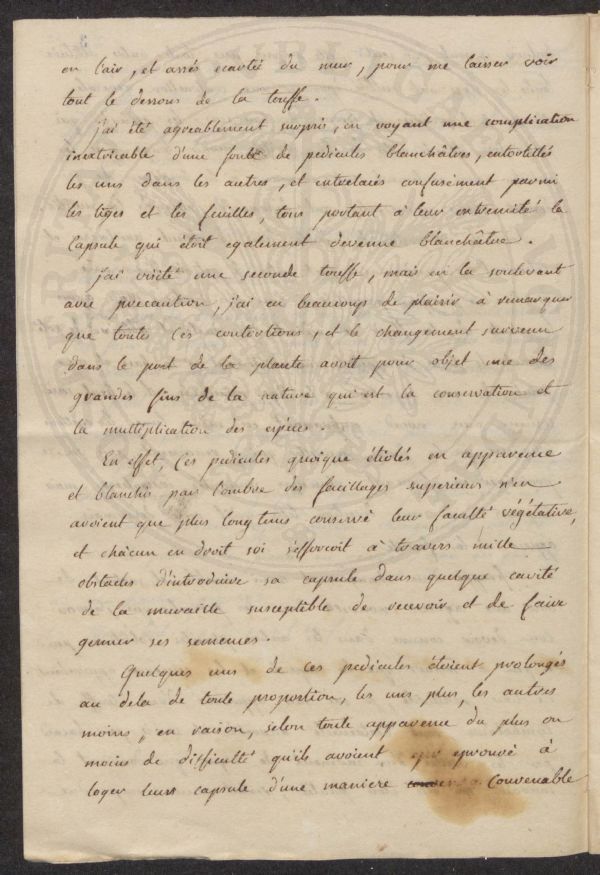 en l'air, et assés ecartée du mur, pour me laisser voir
tout le dessous de la touffe.
j'ai été agreablement surpris, en voyant une complication
inextricable d'une foule de pedicules blanchâtres, entortillés
les uns dans les autres, et entrelacés confusément parmi
les tiges et les feuilles, tous portant à leur extremité la
Capsule qui étoit egalement devenue blanchâtre.
j'ai visité une seconde touffe, mais en la soulevant
avec precaution, j'ai eu beaucoup de plaisir à remarquer
que toutes ces contortions, et le changement survenu
dans le port de la plante avoit pour objet une des
grandes fins de la nature qui est la conservation et
la multiplication des espéces.
En effet, ces pedicules quoique étiolés en apparence
et blanchis par l'ombre des feuillages superieurs n'en
avoient que plus longtems conservé leur faculté végétative,
et chacun en droit soi s'efforcoit à travers mille
obstacles d'introduire sa capsule dans quelque cavité
de la muraille susceptible de recevoir et de faire
germer ses semences.
Quelques uns de ces pedicules étoient prolongés
au dela de toute proportion, les uns plus, les autres
moins, en raison, selon toute apparence du plus ou
moins de difficulté qu'ils avoient eprouvé à
loger leurs capsule d'une maniere convenable